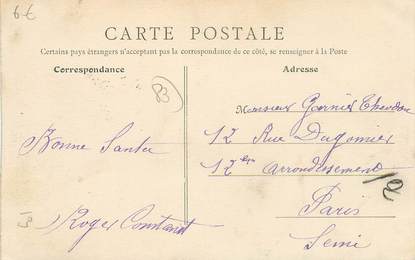 6-€
CARTE POSTALE
Certains pays étrangers n'acceptant pas la correspondance de ce côté, se renseigner à la Poste
Correspondance
Adresse
Bonne Santé
Roger Constant
Monsieur Garnier
12 Rue Dugomier
12 arrondissement
Paris
Seine